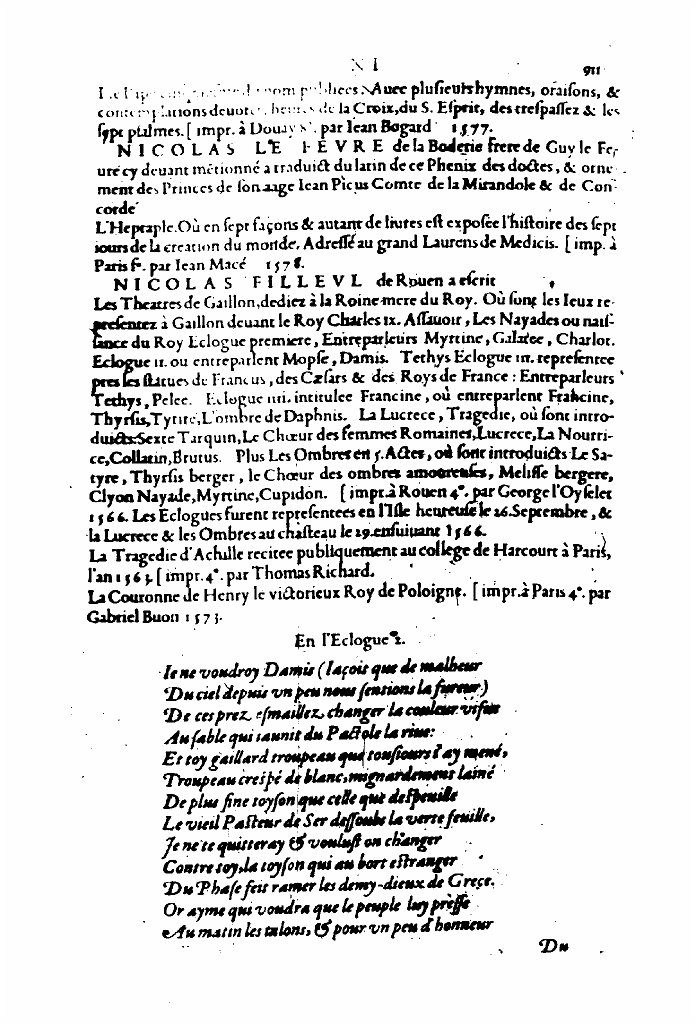 N I 911
publiees. Auec plusieurs hymnes, oraisons, &
contemplations deuotes de la Croix, du S. Esprit, des trespassez & les
sept psalmes. [ impr. à Douay 8°. par Iean Bogard 1577.
NICOLAS LE FEVRE de la Boderie frere de Guy le Fe-
ure cy deuant métionné a traduict du latin de ce Phenix des doctes, & orne
ment des Princes de son aage Iean Picus Comte de la Mirandole & de Con-
corde
L'Heptaple. Où en sept façons & autant de liures est exposée l'histoire des sept
iours de la creation du monde. Adressé au grand Laurens de Medicis. [ imp. à
Paris f°. par Iean Macé 1578.
NICOLAS FILLEVL de Rouen a escrit
Les Theatres de Gaillon, dediez à la Roine mere du Roy. Où sont les Ieux re-
presentez à Gaillon deuant le Roy Charles ix. Assauoir, Les Nayades ou nais-
sance du Roy Eclogue premiere, Entreparleurs Myrtine, Galatee, Charlot.
Eclogue ii. ou entreparlent Mopse, Damis. Tethys Eclogue iii. representee
pres les statues de Francus, des Cæsars & des Roys de France : Entreparleurs
Tethys, Pelee. Eclogue iiii. intitulee Francine, où entreparlent Francine,
Thyrsis, Tytire, L'ombre de Daphnis. La Lucrece, Tragedie, où sont intro-
duicts Sexte Tarquin, Le Chœur des femmes Romaines, Lucrece, La Nourri-
ce, Collatin, Brutus. Plus Les Ombres en 5. Actes, où sont introduicts Le Sa-
tyre, Thyrsis berger, le Chœur des ombres amoureuses, Melisse bergere,
Clyon Nayade, Myrtine, Cupidon. [ impr. à Rouen 4°. par George l'Oyselet
1566. Les Eclogues furent representees en l'Isle heureuse le 26. Septembre, &
la Lucrece & les Ombres au chasteau le 29. ensuiuant 1566.
La Tragedie d'Achille recitee publiquement au college de Harcourt à Paris,
l'an 1563. [ impr. 4°. par Thomas Richard.
La Couronne de Henry le victorieux Roy de Poloigne. [ impr. à Paris 4°. par
Gabriel Buon 1573.
En l'Eclogue 2.
Ie ne voudroy Damis (Iaçoit que de malheur
Du ciel depuis vn peu nous sentions la fureur)
De ces prez esmaillez changer la couleur vifue
Au sable qui iaunit du Pactole la riue:
Et toy gaillard troupeau que tousiours i'ay mené,
Troupeau crespé de blanc, mignardement lainé
De plus fine toyson que celle que despouille
Le vieil Pasteur de Ser dessoubs la verte feuille,
Je ne te quitteray & voulust on changer
Contre toy, la toyson qui au bort estranger
Du Phase feit ramer les demy-dieux de Grece.
Or ayme qui voudra que le peuple luy presse
Au matin les talons, & pour vn peu d'honneur
Du